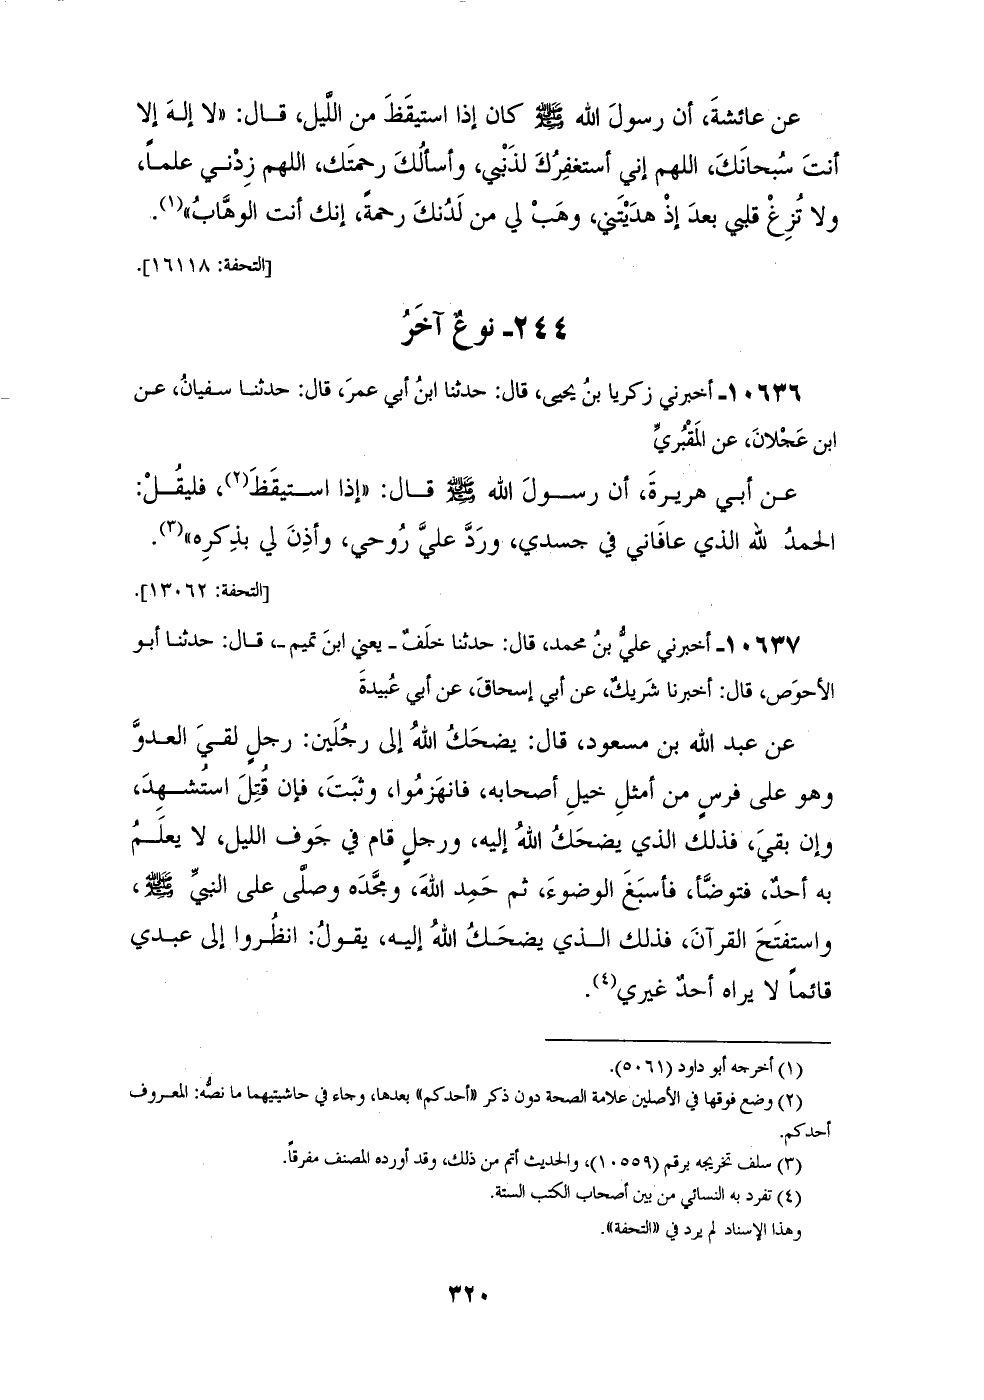 عن عائشةَ، أن رسولَ الله ﷺ كان إذا استيقَظَ من اللَّيل، قـال: «لا إلهَ إلا
أنتَ سُبحانَكَ، اللهم إني أستغفِرُكَ لذَنْبي، وأسألُكَ رحمتَك، اللهم زِدْنـي علمـاً،
ولا تُزِغْ قلبي بعدَ إذْ هدَيْتَني، وهَبْ لي من لَدُنكَ رحمةً، إنك أنت الوهَّابُ»(١).
[التحفة: ١٦١١٨].
٢٤٤ـ نوعٌ آخَرُ
١٠٦٣٦ـ أخبرني زكريا بنُ يحيى، قال: حدثنا ابنُ أبي عمرَ، قال: حدثنـا سـفيانُ، عـن
ابن عَجْلانَ، عن المَقْبُريِّ
عـن أبـي هريـرةَ، أن رسـولَ الله ﷺ قـال: «إذا اسـتيقَظَ(٢)، فليقُـلْ:
الحمدُ لله الذي عافَاني في جسدي، وردَّ عليَّ رُوحي، وأذِنَ لي بذِكرِه»(٣).
[التحفة: ١٣٠٦٢].
١٠٦٣٧ـ أخبرني عليُّ بنُ محمد، قال: حدثنا خلَفٌ ـ يعني ابنَ تميم ـ، قـال: حدثنـا أبـو
الأحوَص، قال: أخبرنا شَريكٌ، عن أبي إسحاقَ، عن أبي عُبيدةَ
عن عبد الله بن مسعود، قال: يضحَكُ اللهُ إلى رجُلَين: رجلٍ لقـيَ العـدوَّ
وهو على فرسٍ من أمثلِ خيلِ أصحابه، فانهَزمُوا، وثبَتَ، فإن قُتِلَ استُشـهِدَ،
وإن بقيَ، فذلك الذي يضحَكُ اللهُ إليه، ورجلٍ قام في جَوف الليل، لا يعلَـمُ
به أحدٌ، فتوضَّأ، فأسبَغَ الوضوءَ، ثم حَمِد اللهَ، ومجَّدَه وصلَّى على النبيِّ ﷺ،
واستفتَحَ القرآنَ، فذلك الـذي يضحَـكُ اللهُ إليـه، يقـولُ: انظُـروا إلى عبـدي
قائماً لا يراه أحدٌ غيري(٤).
(١) أخرجه أبو داود (٥٠٦١).
(٢) وضع فوقها في الأصلين علامة الصحة دون ذكر «أحدكم» بعدها، وجاء في حاشيتيهما ما نصُّه: المعـروف
أحدكم.
(٣) سلف تخريجه برقم (١٠٥٥٩)، والحديث أتم من ذلك، وقد أورده المصنف مفرقاً.
(٤) تفرد به النسائي من بين أصحاب الكتب الستة.
وهذا الإسناد لم يرد في «التحفة».
٣٢٠